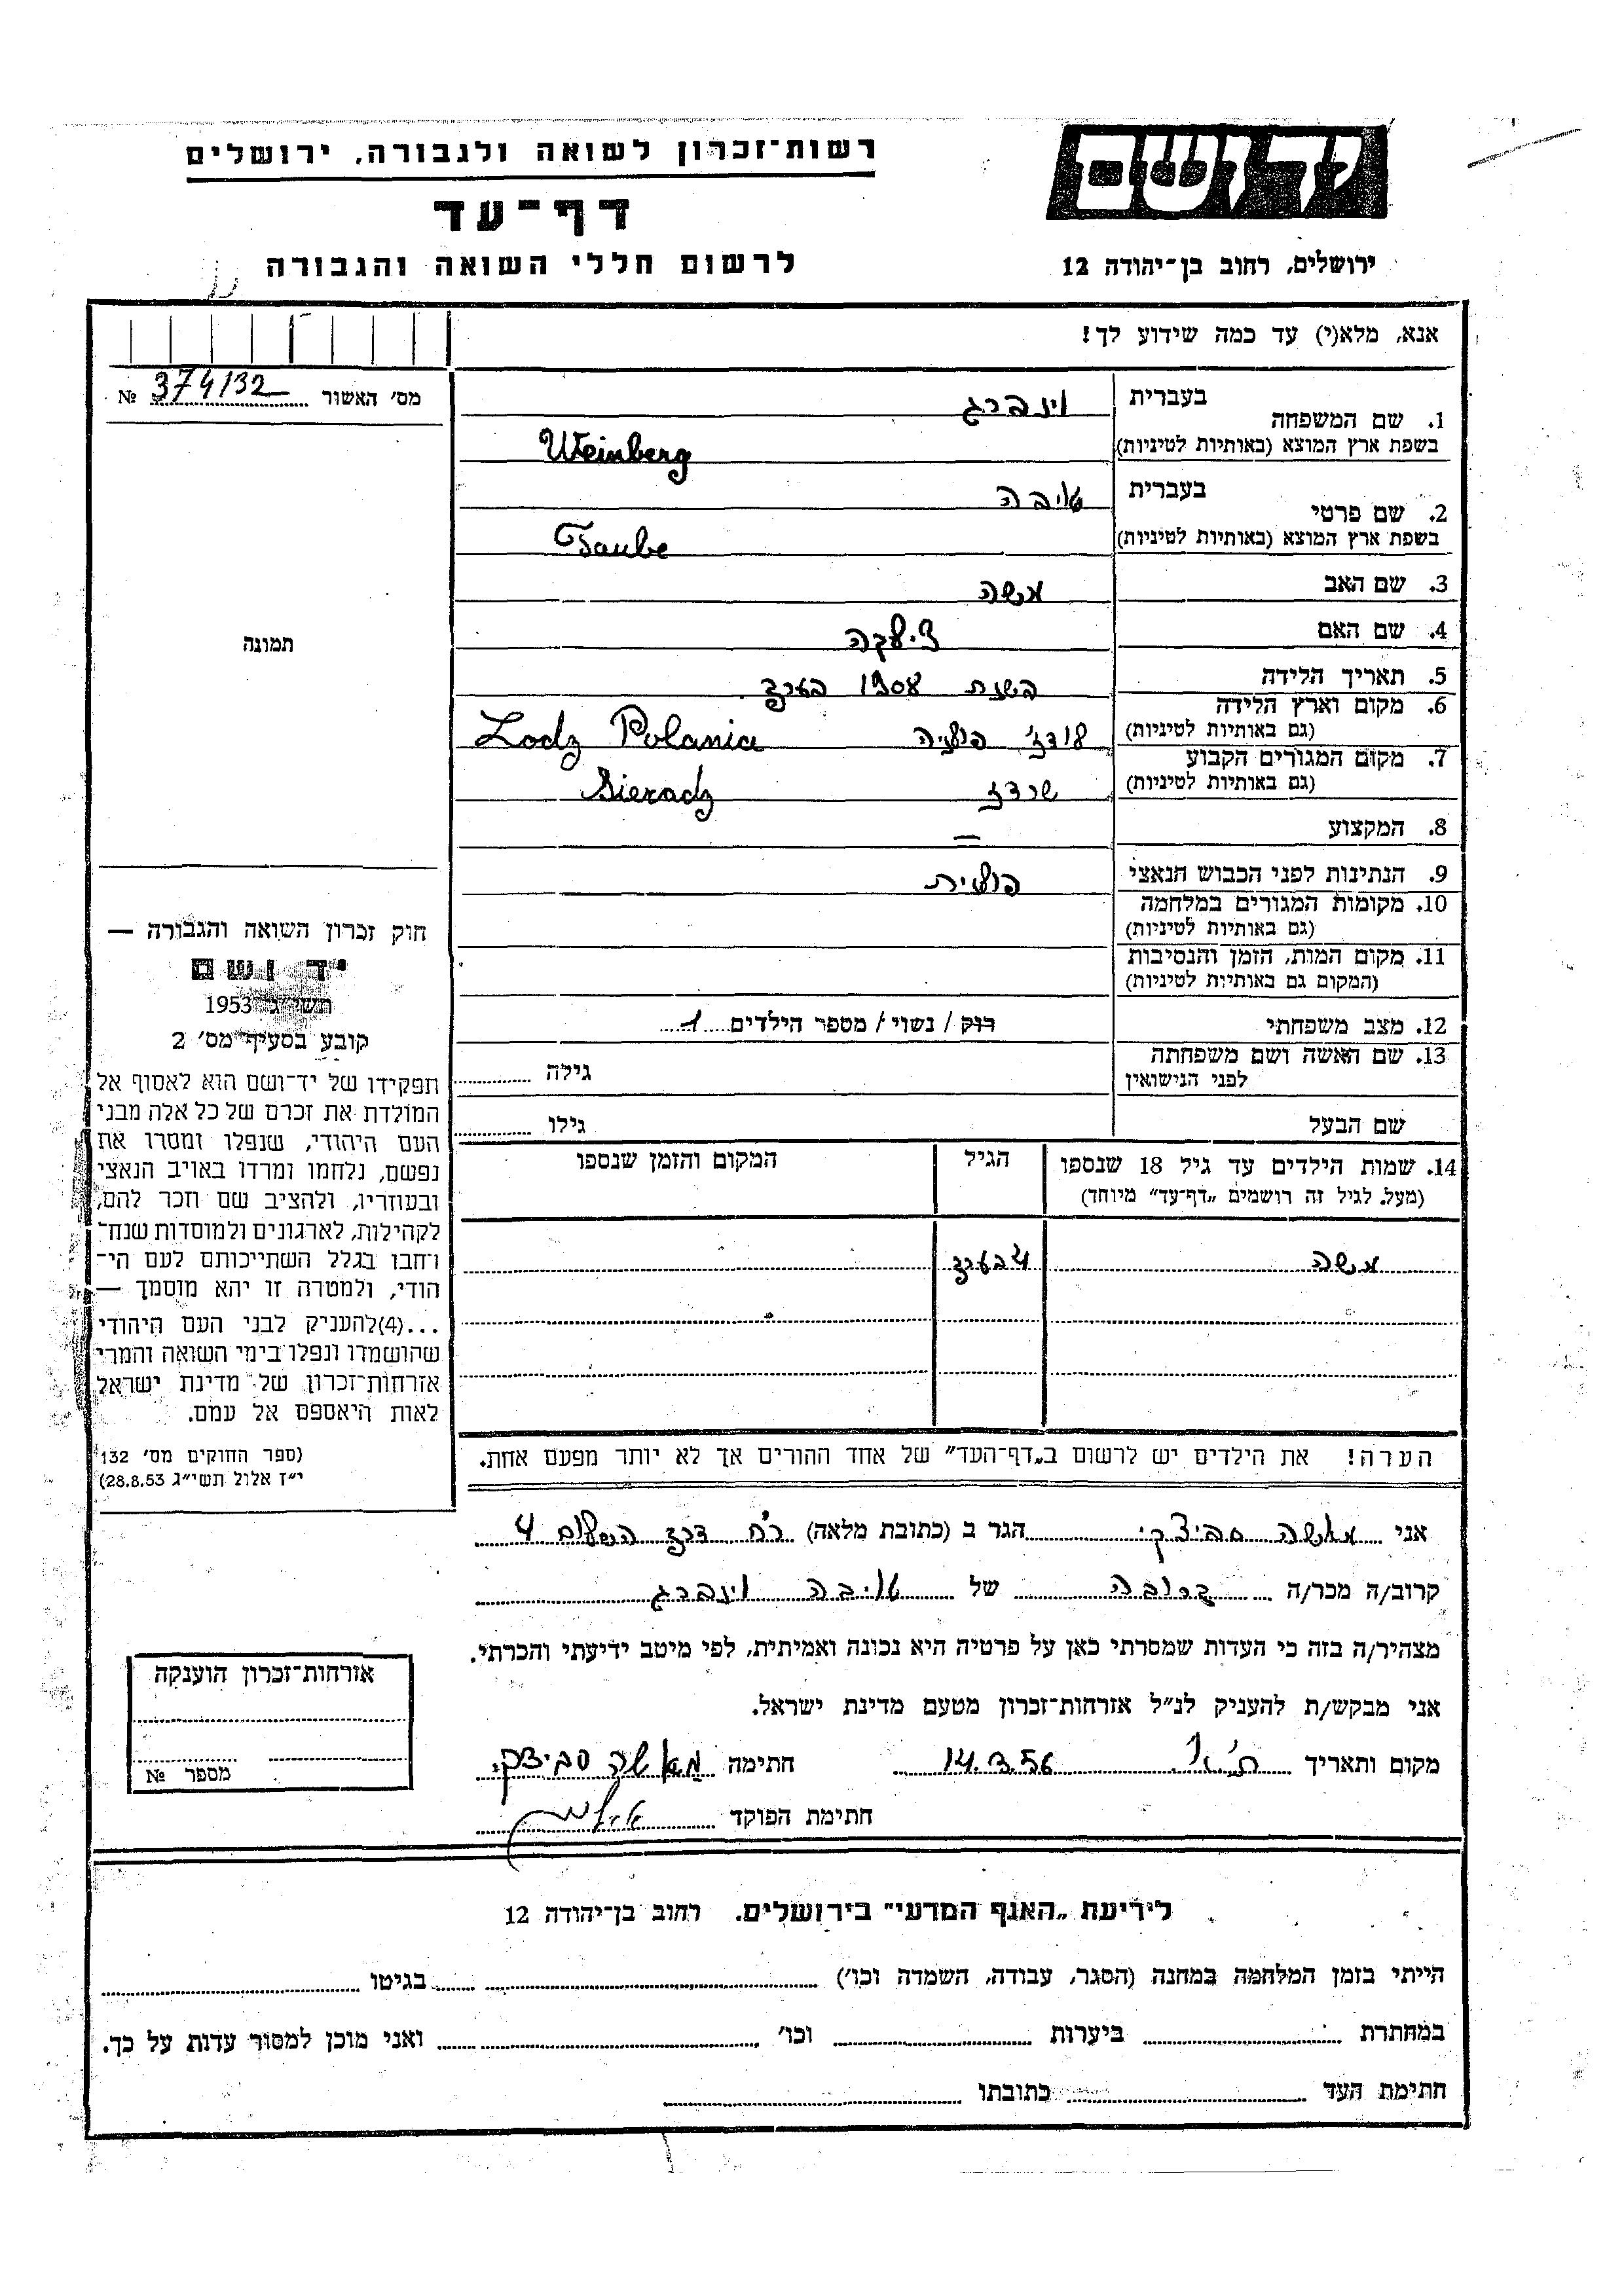 יד ושם
רשות־זכרון לשואה ולגבורה, ירושלים
דף־עד
לרשום חללי השואה והגבורה
ירושלים, רחוב בן־יהודה 12
אנא, מלא(י) עד כמה שידוע לך!
מס׳ האשור № 374/32
1. שם המשפחה בעברית וינברג
בשפת ארץ המוצא (באותיות לטיניות) Weinberg
2. שם פרטי בעברית טויבה
בשפת ארץ המוצא (באותיות לטיניות) Taube
3. שם האב משה
4. שם האם
5. תאריך הלידה בשנת 1908 בערך
6. מקום וארץ הלידה
(גם באותיות לטיניות) לודז׳ פולניה Lodz Polania
7. מקום המגורים הקבוע
(גם באותיות לטיניות) שרדז Sieradz
8. המקצוע —
9. הנתינות לפני הכבוש הנאצי פולנית
10. מקומות המגורים במלחמה
(גם באותיות לטיניות)
11. מקום המות, הזמן והנסיבות
(המקום גם באותיות לטיניות)
12. מצב משפחתי רוק / נשוי / מספר הילדים 1
13. שם האשה ושם משפחתה
לפני הנישואין גילה
שם הבעל גילו
14. שמות הילדים עד גיל 18 שנספו הגיל המקום והזמן שנספו
(מעל לגיל זה רושמים „דף־עד״ מיוחד)
משה 4 בערך
הערה! את הילדים יש לרשום ב„דף־העד״ של אחד ההורים אך לא יותר מפעם אחת.
תמונה
חוק זכרון השואה והגבורה —
יד ושם
תשי״ג 1953
קובע בסעיף מס׳ 2
תפקידו של יד־ושם הוא לאסוף אל
המולדת את זכרם של כל אלה מבני
העם היהודי, שנפלו ומסרו את
נפשם, נלחמו ומרדו באויב הנאצי
ובעוזריו, ולהציב שם וזכר להם,
לקהילות, לארגונים ולמוסדות שנח־
רבו בגלל השתייכותם לעם הי־
הודי, ולמטרה זו יהא מוסמך —
...(4)להעניק לבני העם היהודי
שהושמדו ונפלו בימי השואה והמרי
אזרחות־זכרון של מדינת ישראל
לאות היאספם אל עמם.
(ספר החוקים מס׳ 132
י״ז אלול תשי״ג 28.8.53)
אני מאשה סביצקי הגר ב (כתובת מלאה) רח דרך השלום 4
קרוב/ה מכר/ה קרובה של טויבה וינברג
מצהיר/ה בזה כי העדות שמסרתי כאן על פרטיה היא נכונה ואמיתית, לפי מיטב ידיעתי והכרתי.
אני מבקש/ת להעניק לנ״ל אזרחות־זכרון מטעם מדינת ישראל.
מקום ותאריך ת״א 14.3.56 חתימה מאשה סביצקי
חתימת הפוקד
אזרחות־זכרון הוענקה
מספר №
לידיעת „האגף המדעי״ בירושלים. רחוב בן־יהודה 12
הייתי בזמן המלחמה במחנה (הסגר, עבודה, השמדה וכו׳) בגיטו
במחתרת ביערות וכו׳ ואני מוכן למסור עדות על כך.
חתימת העד כתובתו